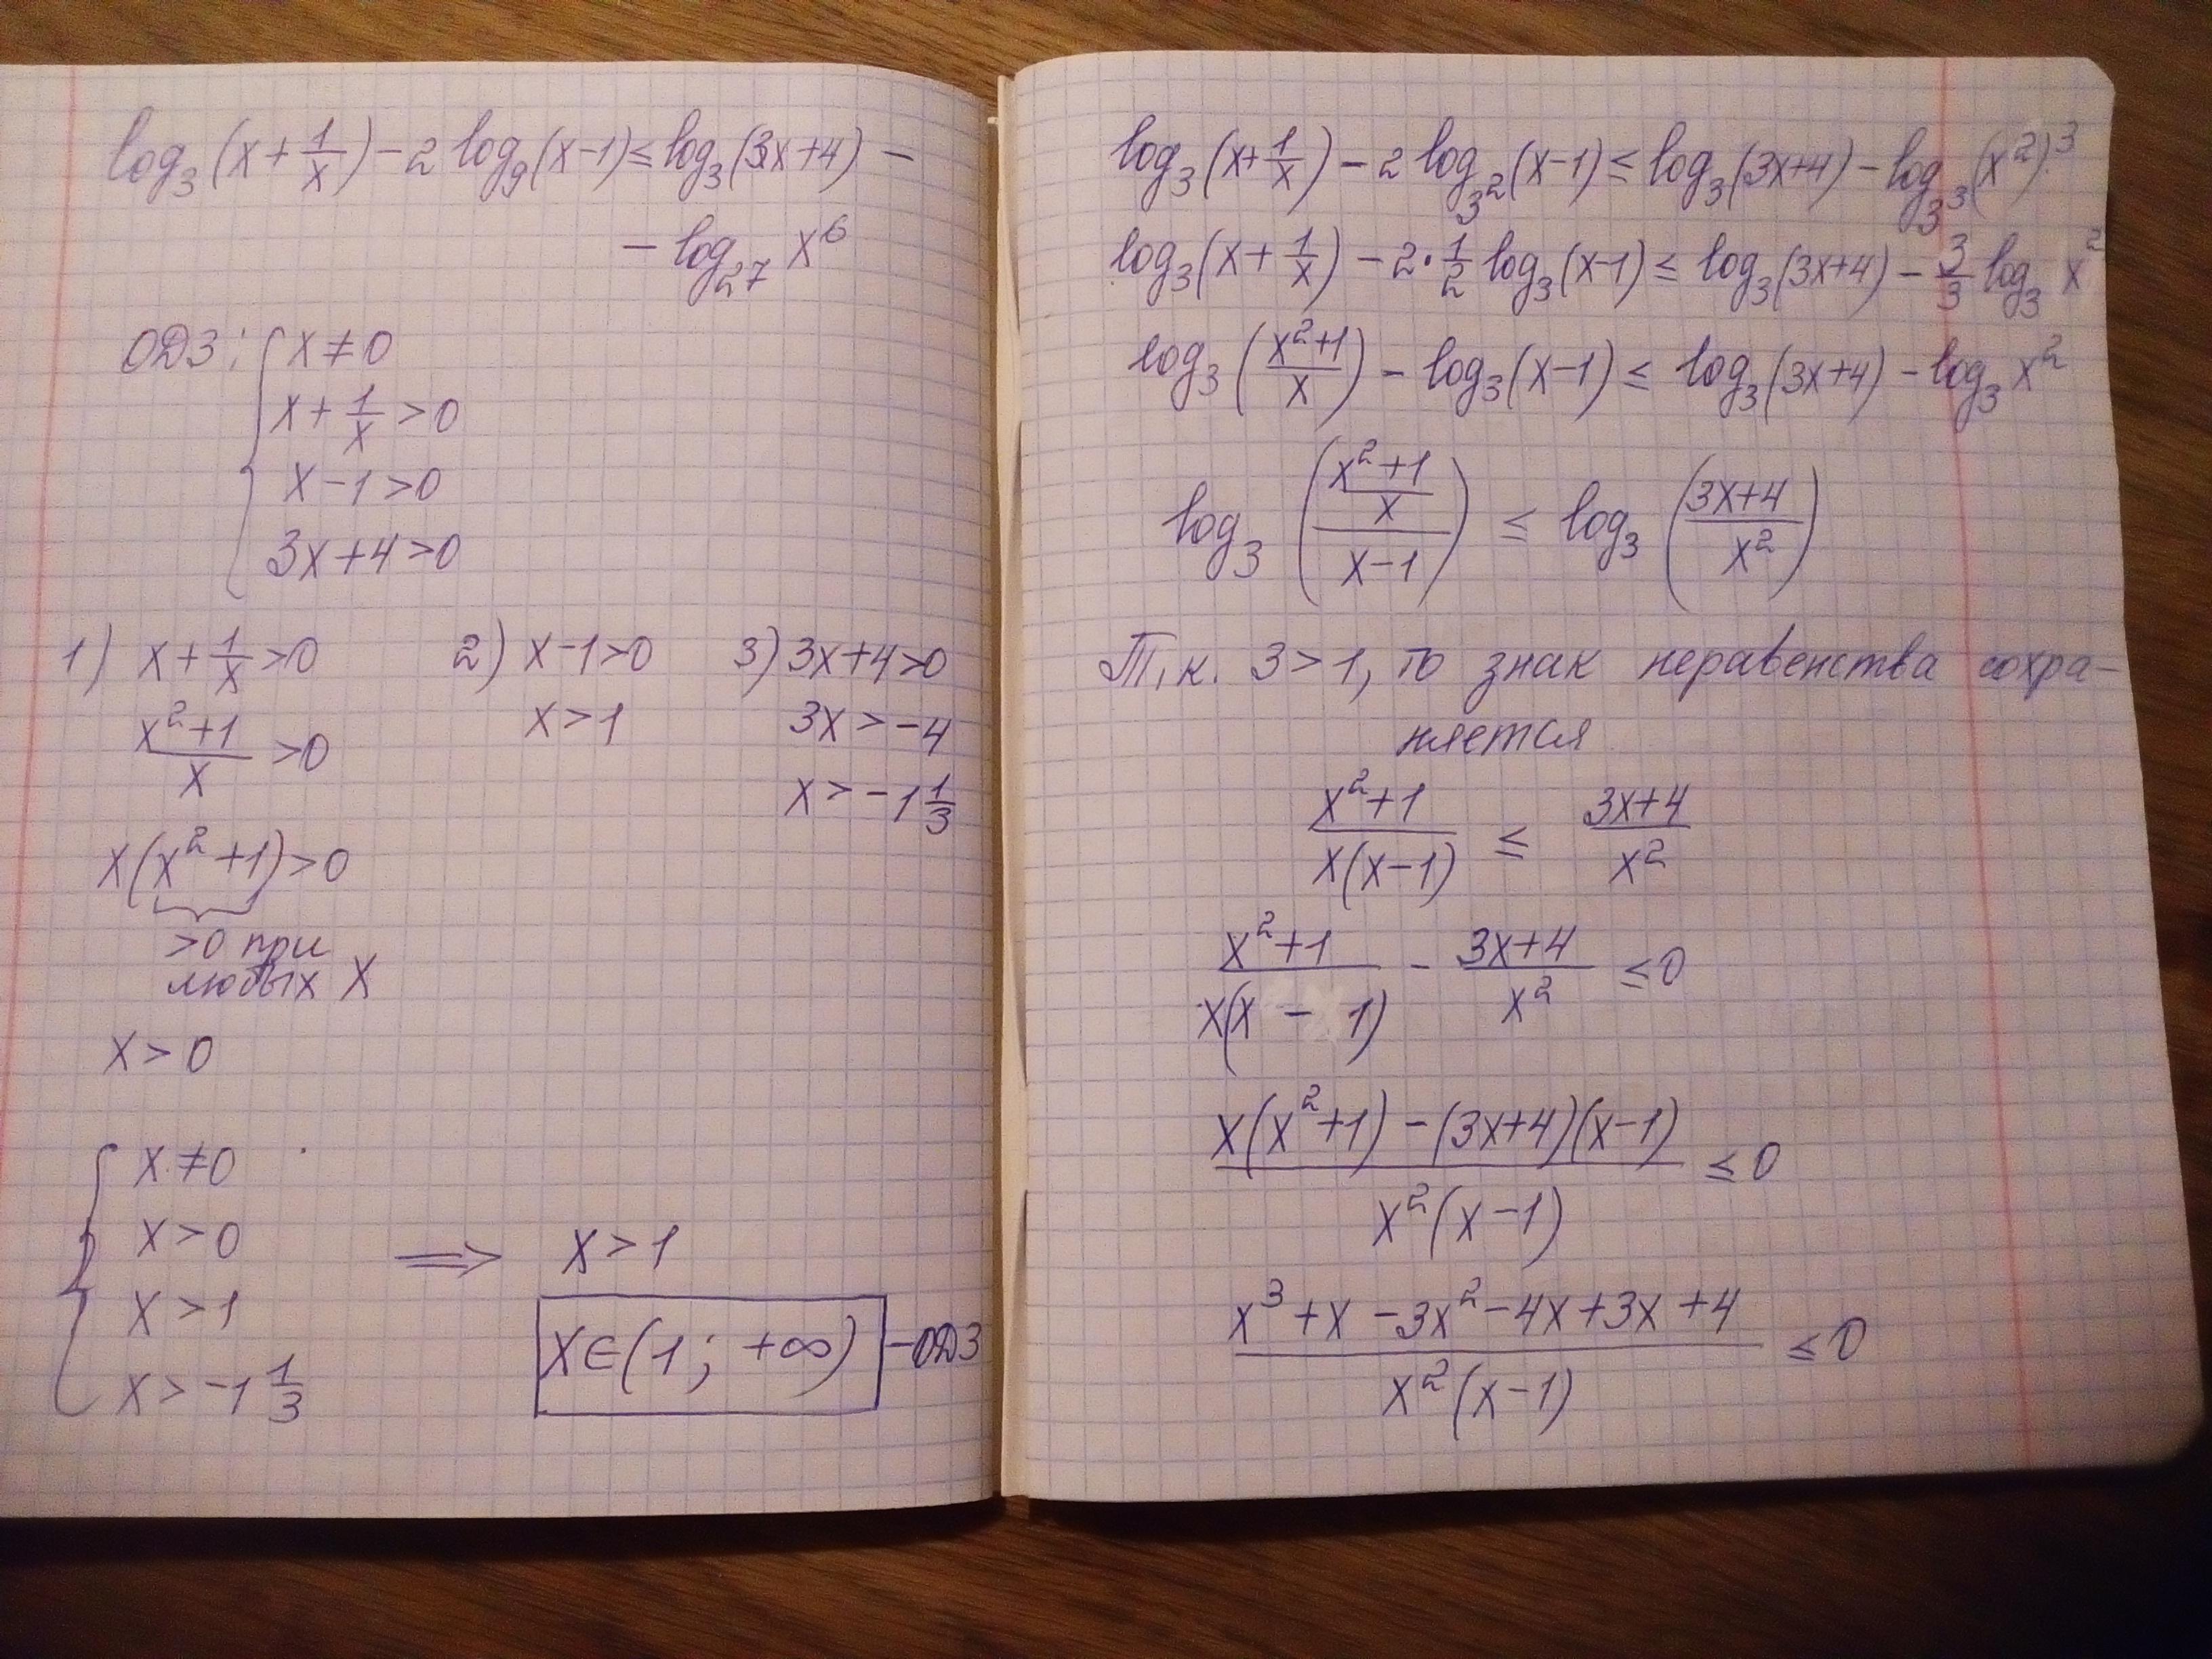 log₃(x + 1/x) − 2 log₉(x−1) ≤ log₃(3x+4) −
− log₂₇ x⁶
ОДЗ: { x ≠ 0
x + 1/x > 0
x − 1 > 0
3x + 4 > 0
1) x + 1/x > 0
(x² + 1)/x > 0
x(x² + 1) > 0
>0 при
любых x
x > 0
2) x − 1 > 0
x > 1
3) 3x + 4 > 0
3x > −4
x > −1 1/3
{ x ≠ 0
x > 0
x > 1
x > −1 1/3
⟹ x > 1
x ∈ (1; +∞) − ОДЗ
log₃(x + 1/x) − 2 log_{3²}(x−1) ≤ log₃(3x+4) − log_{3³}(x²)³
log₃(x + 1/x) − 2 · 1/2 log₃(x−1) ≤ log₃(3x+4) − 3/3 log₃ x²
log₃((x²+1)/x) − log₃(x−1) ≤ log₃(3x+4) − log₃ x²
log₃(((x²+1)/x)/(x−1)) ≤ log₃((3x+4)/x²)
Т.к. 3 > 1, то знак неравенства сохра-
няется
(x²+1)/(x(x−1)) ≤ (3x+4)/x²
(x²+1)/(x(x − 1)) − (3x+4)/x² ≤ 0
(x(x²+1) − (3x+4)(x−1))/(x²(x−1)) ≤ 0
(x³ + x − 3x² − 4x + 3x + 4)/(x²(x−1)) ≤ 0